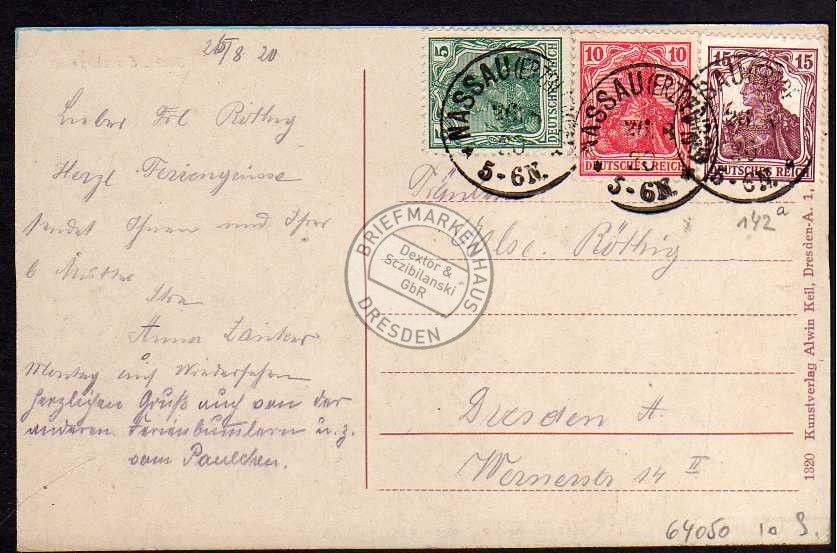 26/8 20
Liebes Frl Röthig
Herzl Feriengrüsse
sendet Ihnen und Ihrer
l Mutter
Ihre
Anna
Montag auf Wiedersehen
herzlichen Gruß auch von der
anderen Ferienbummlern u. z.
vom Paulchen.
5 DEUTSCHES REICH
10 10 DEUTSCHES REICH
15 15 DEUTSCHES REICH
NASSAU (ERZGEB.)
5-6N.
NASSAU (ERZGEB.)
5-6N.
5-6N.
142a
Fräulein
Else Röthig
Dresden A.
Wernerstr 14 II
BRIEFMARKENHAUS
Dextor &
Sczibilanski
GbR
DRESDEN
1320 Kunstverlag Alwin Keil, Dresden-A. 1.
64050 10 S.